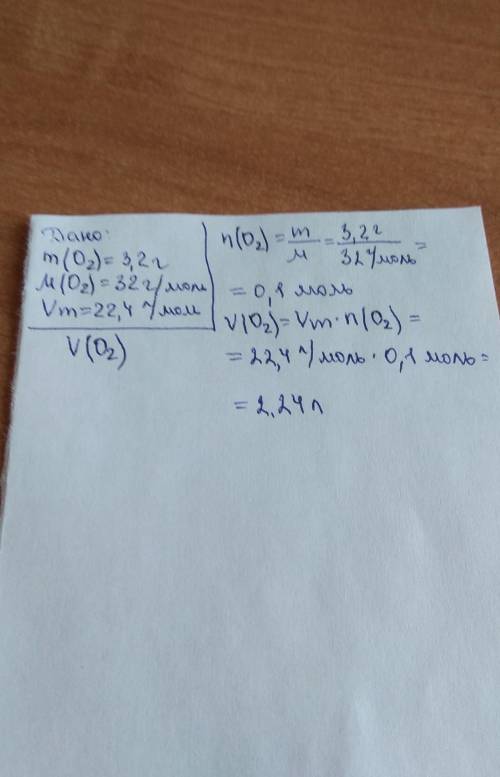 Дано:
m(O₂)=3,2г
M(O₂)=32г/моль
Vm=22,4 л/мол
V(O₂)
n(O₂)=m/M=3,2г/32г/моль=
=0,1 моль
V(O₂)=Vm·n(O₂)=
=22,4 л/моль·0,1 моль=
=2,24л